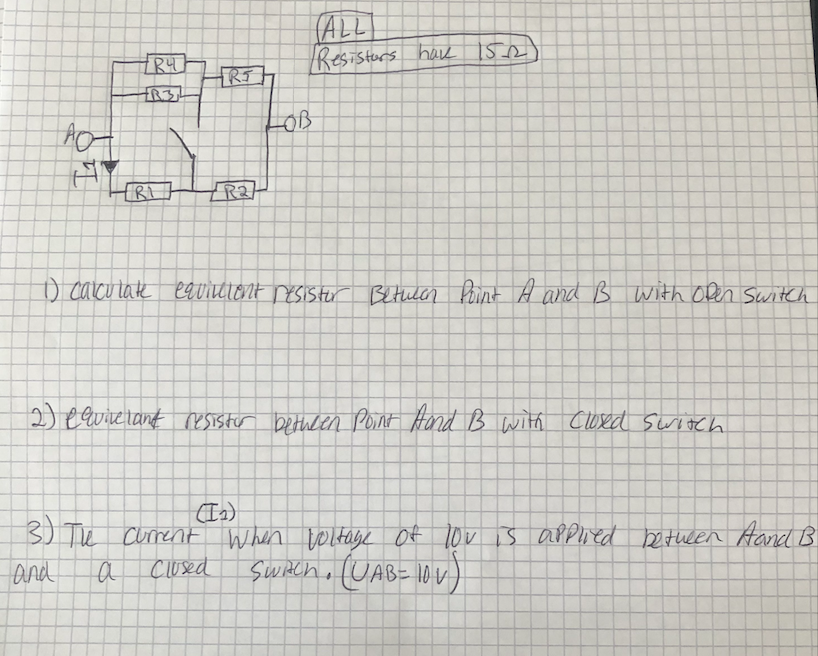 ALL
Resistors have 15Ω
R4
R5
R3
A
B
I1
R1
R2
1) calculate equivelent resistor Between Point A and B with open switch
2) equivelant resistor between Point A and B with closed switch
(I1)
3) The current when voltage of 10v is applied between A and B
and a closed switch. (UAB=10v)